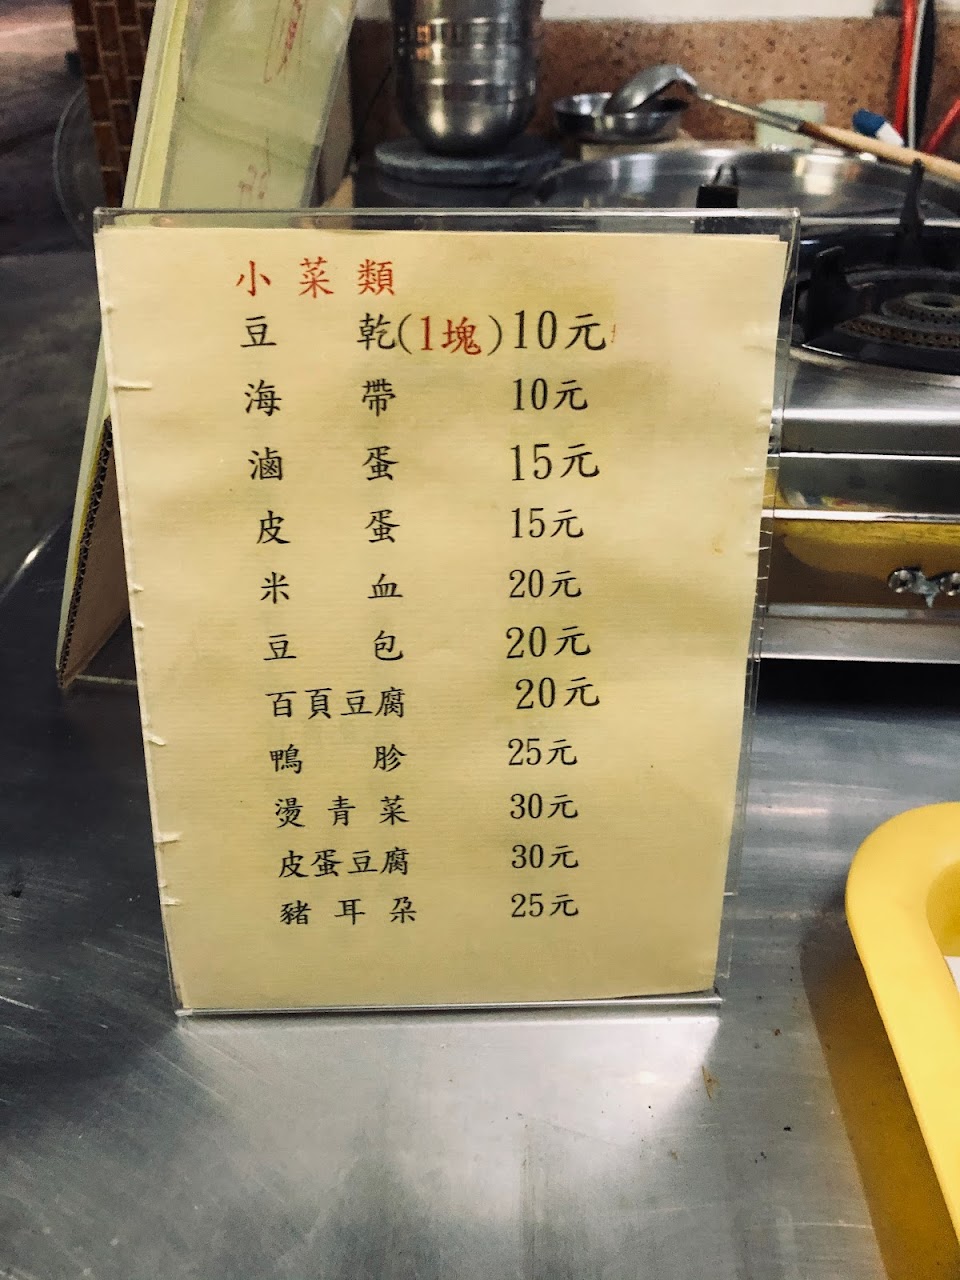 小菜類
豆乾(1塊)10元
海帶 10元
滷蛋 15元
皮蛋 15元
米血 20元
豆包 20元
百頁豆腐 20元
鴨胗 25元
燙青菜 30元
皮蛋豆腐 30元
豬耳朵 25元